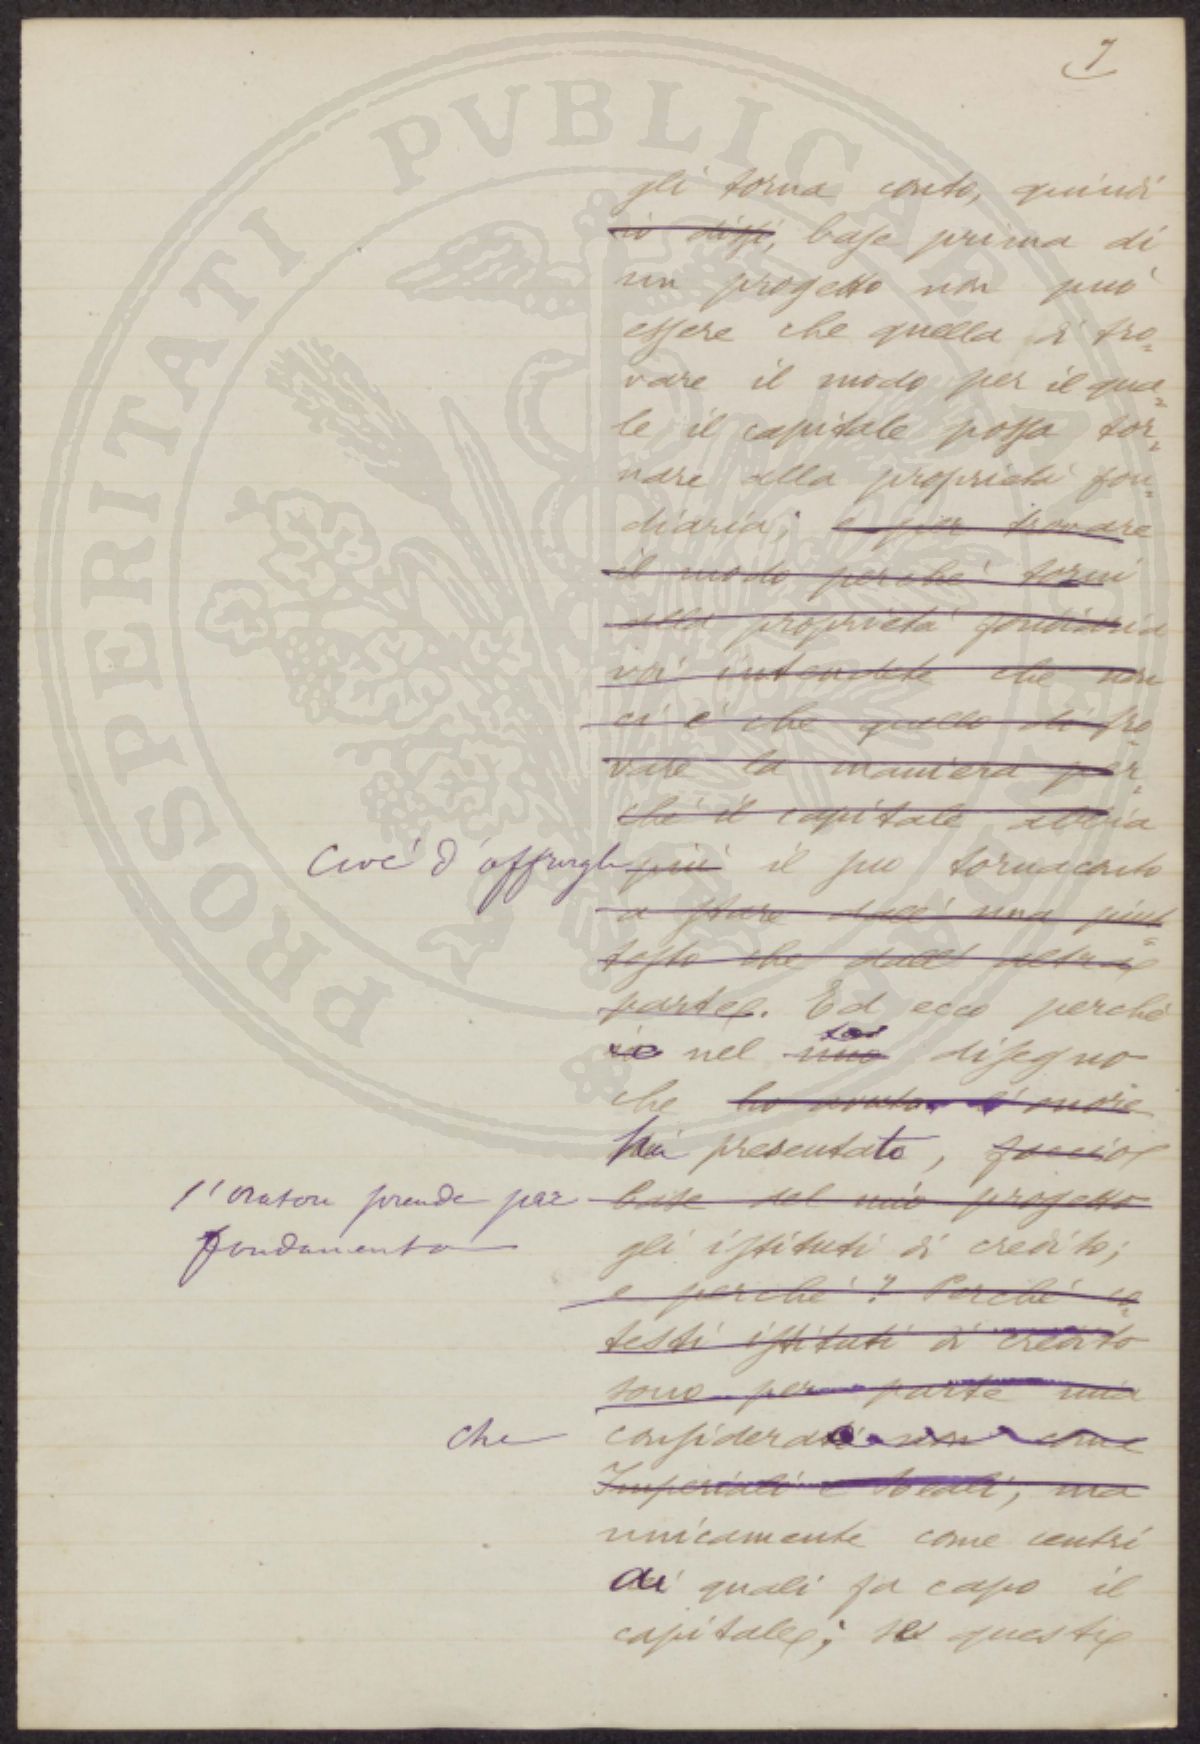 7
gli torna conto, quindi
io dissi, base prima di
un progetto non può
essere che quella di tro=
vare il modo per il qua=
le il capitale possa tor=
nare alla proprietà fon=
diaria; e per trovare
il modo perché torni
alla proprietà fondiaria
voi intendete che non
ci è che quello di tro
vare la maniera per=
ché il capitale abbia
Cioè d'offrirgli più il suo tornaconto
a stare dall'una piut=
tosto che dall'altra
parte. Ed ecco perché
nel mio suo disegno
che ho avuto l'onore
ha presentato, faccio
l'oratore prende per base del mio progetto
fondamento gli istituti di credito;
e perché? Perché co=
testi istituti di credito
sono per parte mia
che considerati non come
Imperiali e Reali, ma
unicamente come centri
ai quali fa capo il
capitale; se questi
PROSPERITATI PVBLICAE